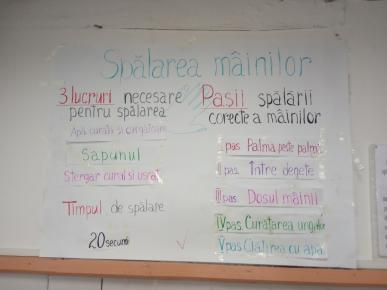 Spălarea mâinilor
3 lucruri necesare
pentru spălarea
Apă curată și curgătoare
Săpunul
Ștergar curat și uscat
Timpul de spălare
20 secunde
Pașii spălării
corecte a mâinilor
I pas Palma peste palmă
II pas Între degete
III pas Dosul mâinii
IV pas Curățarea unghiilor
V pas Clătirea cu apă